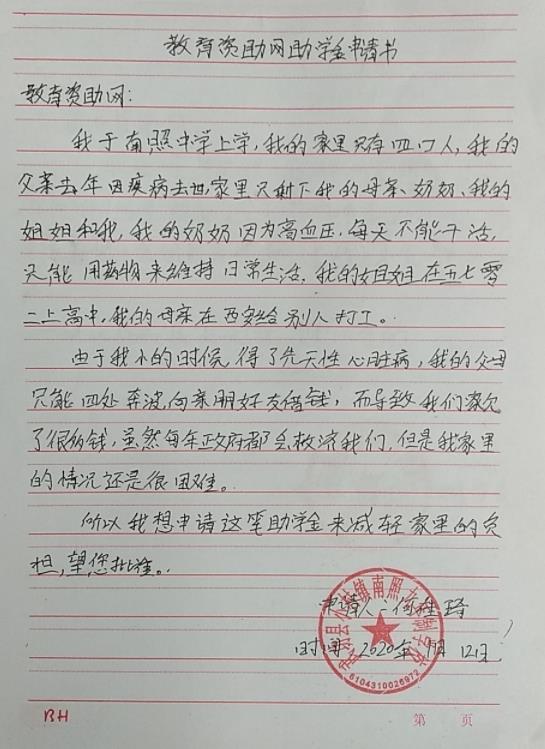 教育资助网助学金申请书
教育资助网:
我于南照中学上学,我的家里只有四口人,我的
父亲去年因疾病去世,家里只剩下我的母亲、奶奶、我的
姐姐和我,我的奶奶因为高血压,每天不能干活,
只能用药物来维持日常生活,我的姐姐在五七零
二上高中,我的母亲在西安给别人打工。
由于我小的时候,得了先天性心脏病,我的父母
只能四处奔波,向亲朋好友借钱,而导致我们家欠
了很多钱,虽然每年政府都会救济我们,但是我家里
的情况还是很困难。
所以我想申请这笔助学金来减轻家里的负
担,望您批准。
申请人
时间 2020年 月12日
镇南照九年制学校
6104310026972
BH
第 页